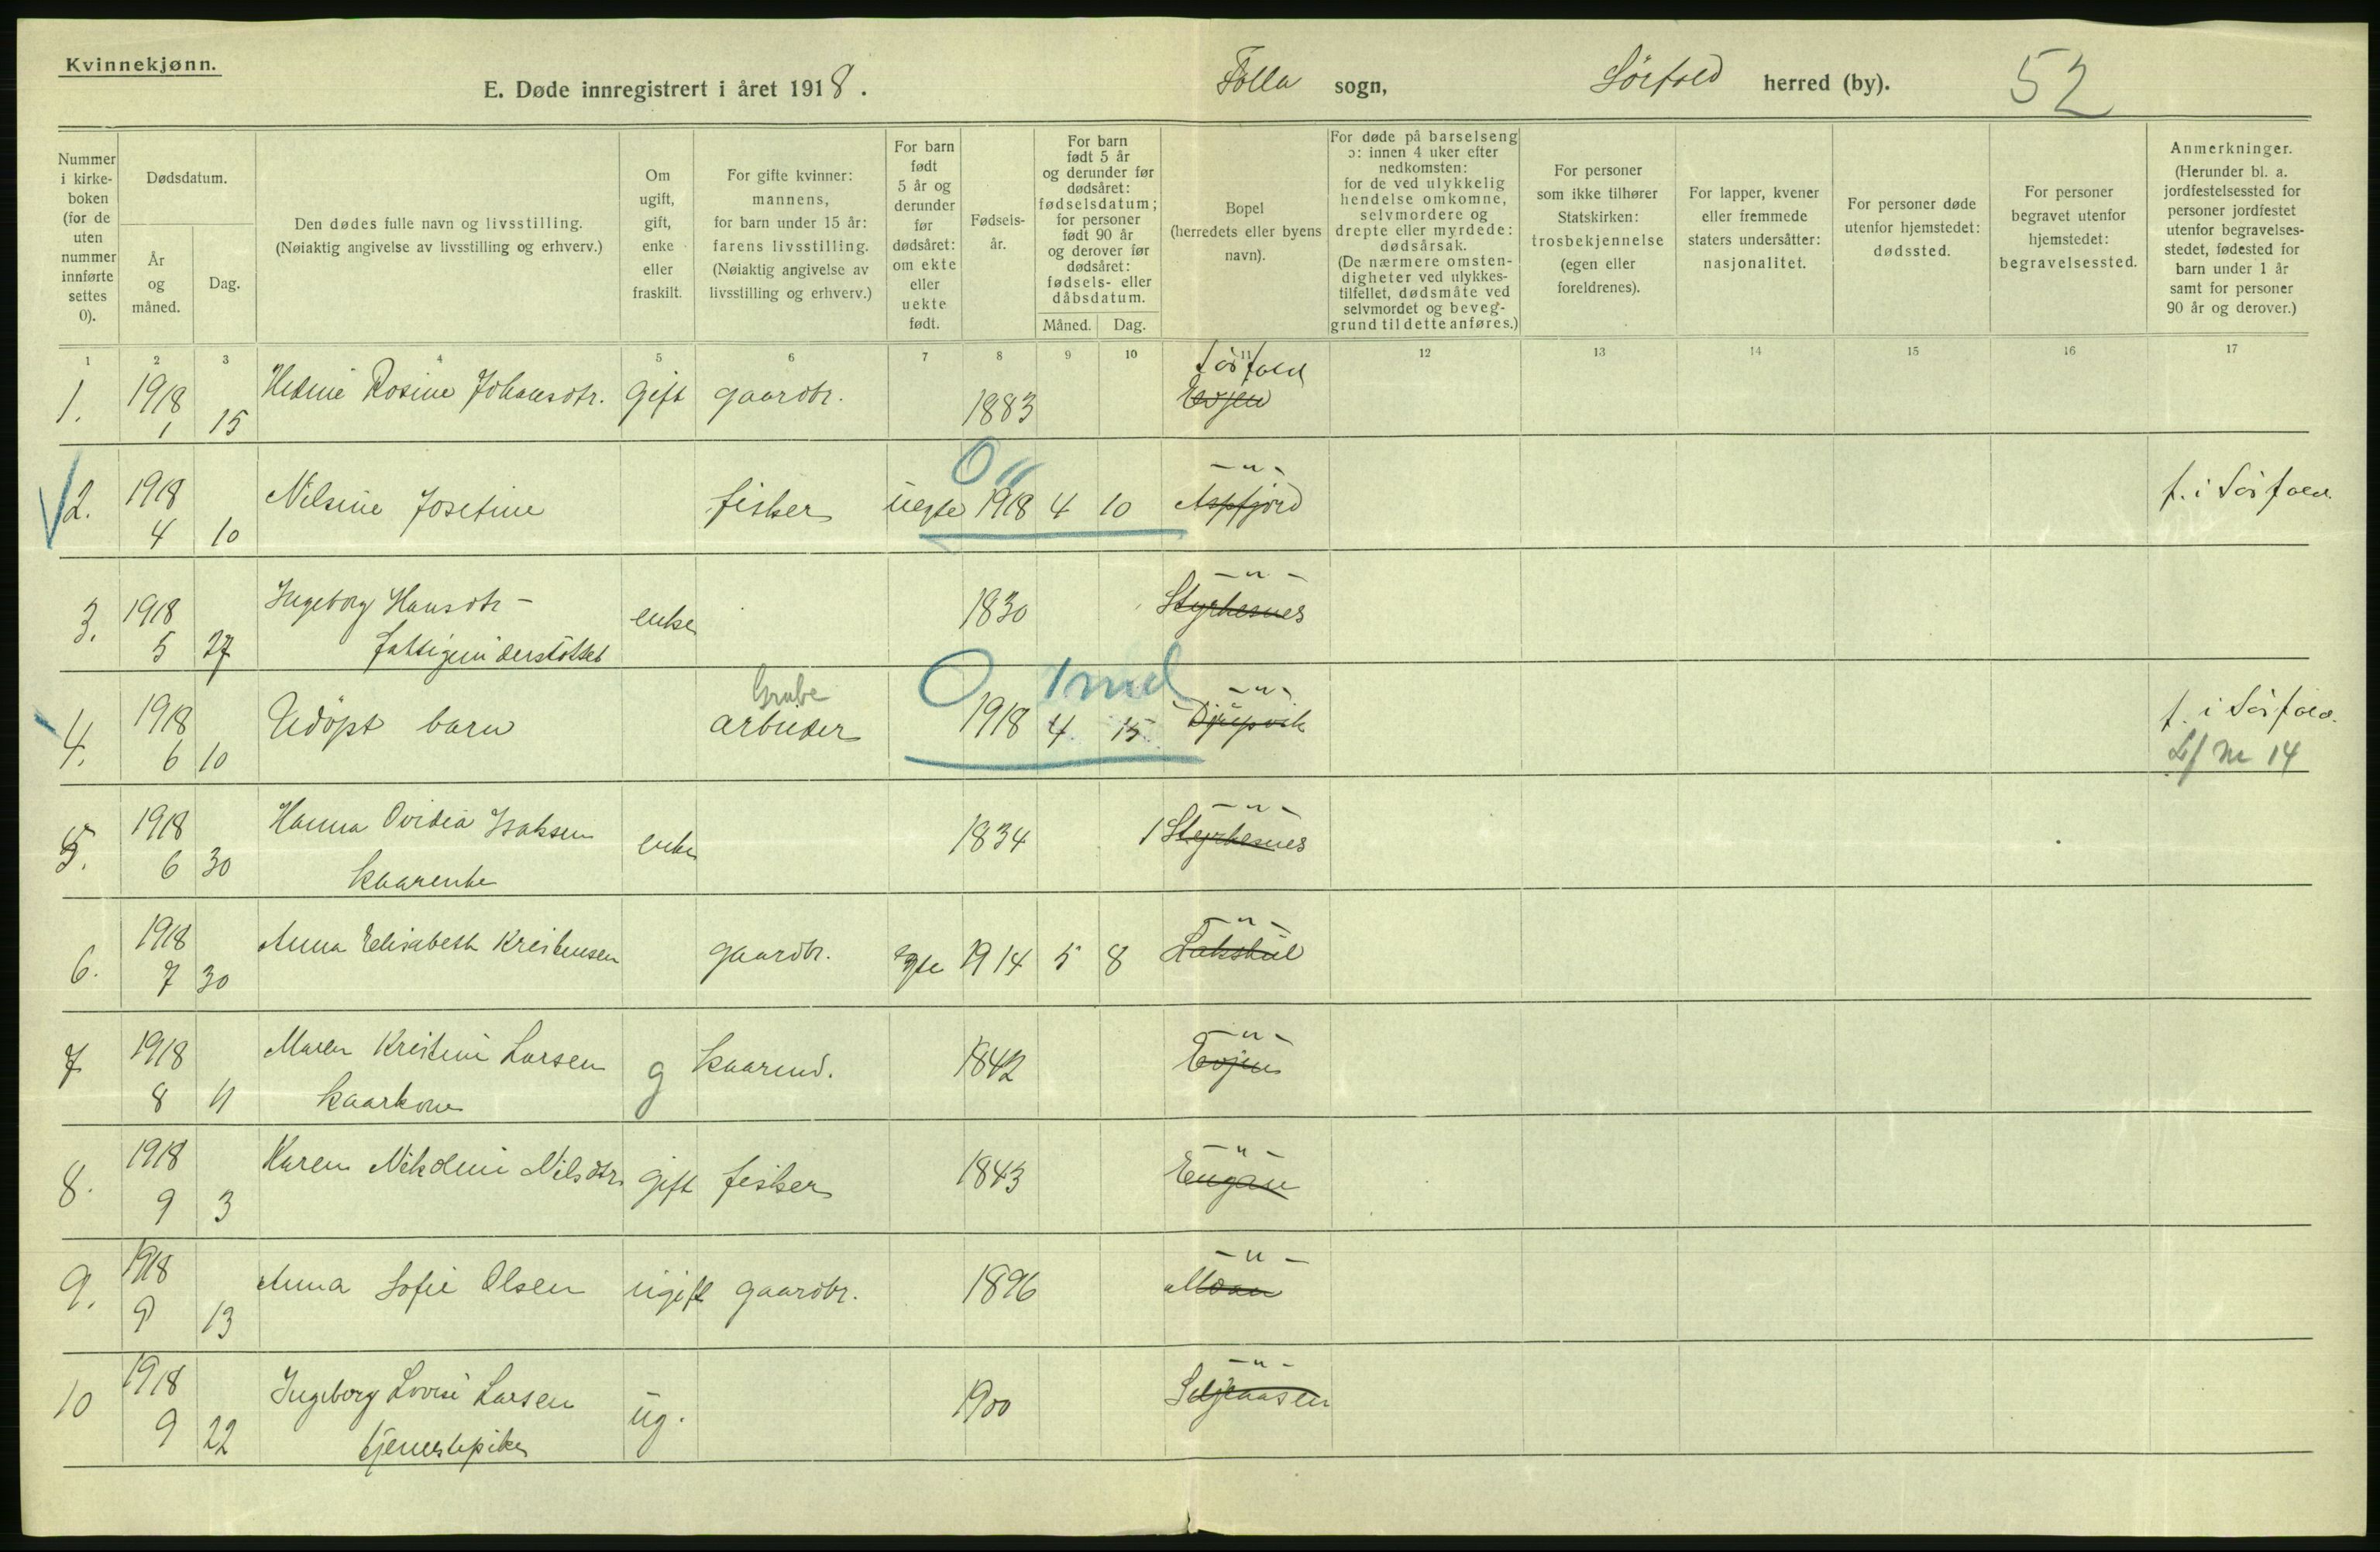 Kvinnekjønn.
E. Døde innregistrert i året 1918.
Folla sogn,
Sörfold herred (by).
52
Nummer i kirke-boken (for de uten nummer innførte settes 0).
Dødsdatum.
År og måned.
Dag.
Den dødes fulle navn og livsstilling.
(Nøiaktig angivelse av livsstilling og erhverv.)
Om ugift, gift, enke eller fraskilt.
For gifte kvinner: mannens, for barn under 15 år: farens livsstilling. (Nøiaktig angivelse av livsstilling og erhverv.)
For barn født 5 år og derunder før dødsåret: om ekte eller uekte født.
Fødsels-år.
For barn født 5 år og derunder før dødsåret: fødselsdatum; for personer født 90 år og derover før dødsåret: fødsels- eller dåbsdatum.
Måned. Dag.
Bopel (herredets eller byens navn).
For døde på barselseng ɔ: innen 4 uker efter nedkomsten: for de ved ulykkelig hendelse omkomne, selvmordere og drepte eller myrdede: dødsårsak. (De nærmere omsten-digheter ved ulykkes-tilfellet, dødsmåte ved selvmordet og beveg-grund til dette anføres.)
For personer som ikke tilhører Statskirken: trosbekjennelse (egen eller foreldrenes).
For lapper, kvener eller fremmede staters undersåtter: nasjonalitet.
For personer døde utenfor hjemstedet: dødssted.
For personer begravet utenfor hjemstedet: begravelsessted.
Anmerkninger. (Herunder bl. a. jordfestelsessted for personer jordfestet utenfor begravelses-stedet, fødested for barn under 1 år samt for personer 90 år og derover.)
1 2 3 4 5 6 7 8 9 10 11 12 13 14 15 16 17
Sörfold
1. 1918 1 15 Hedine Rosine Johansdtr. gift gaardbr. 1883 Evjen
0 "
2. 1918 4 10 Nilsine Josefine fisker uegte 1918 4 10 - " - Aspfjord f. i Sörfold.
3. 1918 5 27 Ingeborg Hansdtr - enke 1830 - " - Styrkesnes
fattigunderstöttet
Grube 0 1 md
4. 1918 6 10 Udöpt barn arbeider 1918 4 15 - " - Djupvik f. i Sörfold.
Lf Nr 14
5. 1918 6 30 Hanna Ovidia Isaksen enke 1834 - " - Styrkesnes
kaarenke
6. 1918 7 30 Anna Elisabeth Kristensen gaardbr. egte 1914 5 8 - " - Lakshul
7 1918 8 11 Maren Kristine Larsen g kaarmd. 1842 - " - Evjen
kaarkone
8. 1918 9 3 Karen Nikoline Nilsdtr. gift fisker 1843 - " - Engan
9. 1918 9 13 Anna Sofie Olsen ugift gaardbr. 1896 - " - Moan
10 1918 9 22 Ingeborg Lovise Larsen ug. 1900 - " - Seljeaasen
tjenestepike